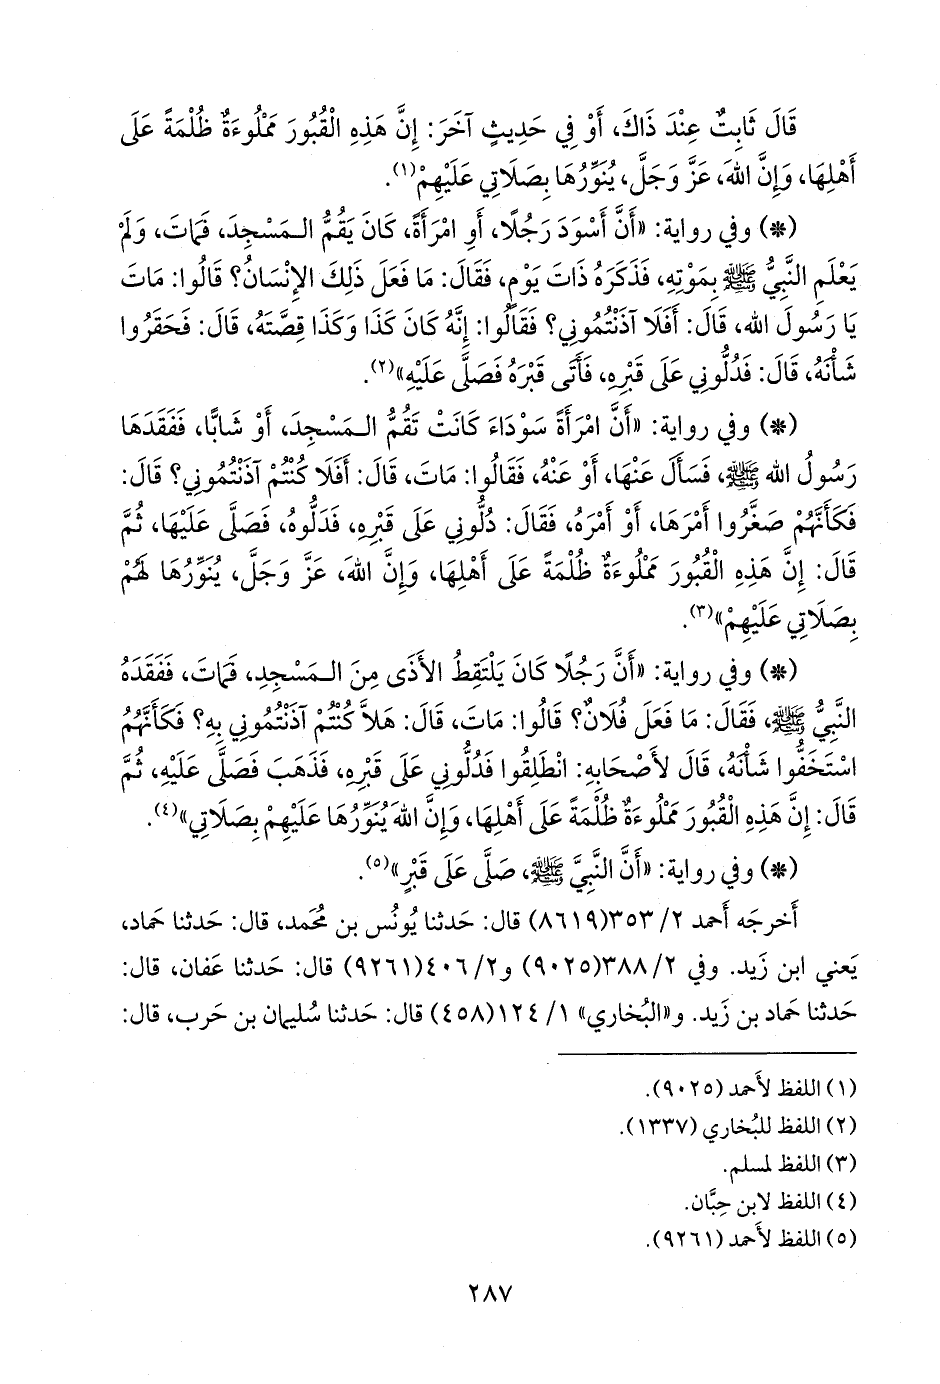 قَالَ ثَابِتٌ عِنْدَ ذَاكَ، أَوْ فِي حَدِيثٍ آخَرَ: إِنَّ هَذِهِ الْقُبُورَ مَمْلُوءَةٌ ظُلْمَةً عَلَى
أَهْلِهَا، وَإِنَّ اللهَ، عَزَّ وَجَلَّ، يُنَوِّرُهَا بِصَلَاتِي عَلَيْهِمْ(١).
(*) وفي رواية: «أَنَّ أَسْوَدَ رَجُلًا، أَوِ امْرَأَةً، كَانَ يَقُمُّ الـمَسْجِدَ، فَمَاتَ، وَلَمْ
يَعْلَمِ النَّبِيُّ ﷺ بِمَوْتِهِ، فَذَكَرَهُ ذَاتَ يَوْمٍ، فَقَالَ: مَا فَعَلَ ذَلِكَ الإِنْسَانُ؟ قَالُوا: مَاتَ
يَا رَسُولَ الله، قَالَ: أَفَلَا آذَنْتُمُونِي؟ فَقَالُوا: إِنَّهُ كَانَ كَذَا وَكَذَا قِصَّتَهُ، قَالَ: فَحَقَرُوا
شَأْنَهُ، قَالَ: فَدُلُّونِي عَلَى قَبْرِهِ، فَأَتَى قَبْرَهُ فَصَلَّى عَلَيْهِ»(٢).
(*) وفي رواية: «أَنَّ امْرَأَةً سَوْدَاءَ كَانَتْ تَقُمُّ الـمَسْجِدَ، أَوْ شَابًّا، فَفَقَدَهَا
رَسُولُ الله ﷺ، فَسَأَلَ عَنْهَا، أَوْ عَنْهُ، فَقَالُوا: مَاتَ، قَالَ: أَفَلَا كُنْتُمْ آذَنْتُمُونِي؟ قَالَ:
فَكَأَنَّهُمْ صَغَّرُوا أَمْرَهَا، أَوْ أَمْرَهُ، فَقَالَ: دُلُّونِي عَلَى قَبْرِهِ، فَدَلُّوهُ، فَصَلَّى عَلَيْهَا، ثُمَّ
قَالَ: إِنَّ هَذِهِ الْقُبُورَ مَمْلُوءَةٌ ظُلْمَةً عَلَى أَهْلِهَا، وَإِنَّ اللهَ، عَزَّ وَجَلَّ، يُنَوِّرُهَا لَهُمْ
بِصَلَاتِي عَلَيْهِمْ»(٣).
(*) وفي رواية: «أَنَّ رَجُلًا كَانَ يَلْتَقِطُ الأَذَى مِنَ الـمَسْجِدِ، فَمَاتَ، فَفَقَدَهُ
النَّبِيُّ ﷺ، فَقَالَ: مَا فَعَلَ فُلَانٌ؟ قَالُوا: مَاتَ، قَالَ: هَلاَّ كُنْتُمْ آذَنْتُمُونِي بِهِ؟ فَكَأَنَّهُمُ
اسْتَخَفُّوا شَأْنَهُ، قَالَ لأَصْحَابِهِ: انْطَلِقُوا فَدُلُّونِي عَلَى قَبْرِهِ، فَذَهَبَ فَصَلَّى عَلَيْهِ، ثُمَّ
قَالَ: إِنَّ هَذِهِ الْقُبُورَ مَمْلُوءَةٌ ظُلْمَةً عَلَى أَهْلِهَا، وَإِنَّ اللهَ يُنَوِّرُهَا عَلَيْهِمْ بِصَلَاتِي»(٤).
(*) وفي رواية: «أَنَّ النَّبِيَّ ﷺ، صَلَّى عَلَى قَبْرٍ»(٥).
أَخرجَه أَحمد ٢/ ٣٥٣(٨٦١٩) قال: حَدثنا يُونُس بن مُحَمد، قال: حَدثنا حَماد،
يَعني ابن زَيد. وفي ٢/ ٣٨٨(٩٠٢٥) و٢/ ٤٠٦(٩٢٦١) قال: حَدثنا عَفان، قال:
حَدثنا حَماد بن زَيد. و«البُخاري» ١/ ١٢٤(٤٥٨) قال: حَدثنا سُليمان بن حَرب، قال:
(١) اللفظ لأَحمد (٩٠٢٥).
(٢) اللفظ للبُخاري (١٣٣٧).
(٣) اللفظ لمسلم.
(٤) اللفظ لابن حِبَّان.
(٥) اللفظ لأَحمد (٩٢٦١).
٢٨٧